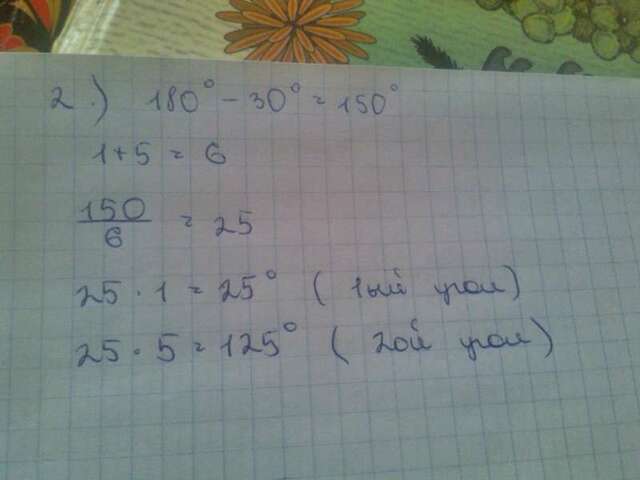 2.) 180° - 30° = 150°
1+5 = 6
150/6 = 25
25 · 1 = 25° ( 1ый угол)
25 · 5 = 125° ( 2ой угол)